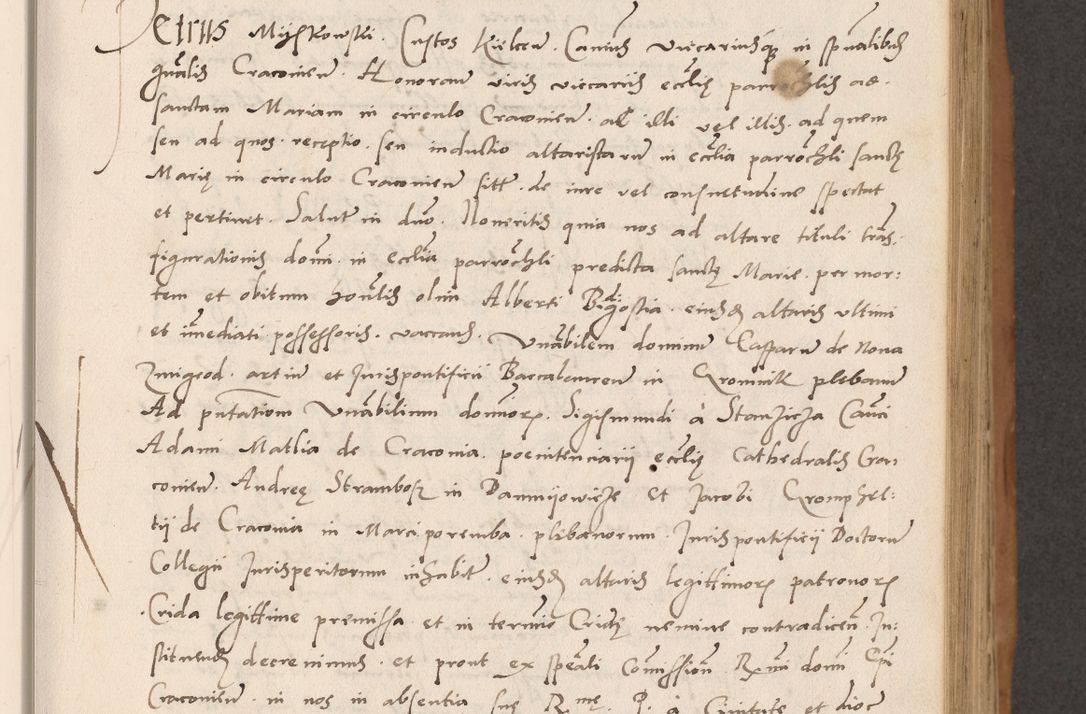 Petrus Miijskowski. Custos Kielcen̄. Canoñs vicariusq̨ in sp̄ualibus
gn̄alis Cracouien̄. Honoran̄ viris vicariis eccl̄ię parrochl̄is ad.
sanctam Mariam in circulo Cracouien̄. ac illi vel illis. ad quem
seu ad quos. receptio. seu inductio altaristarū in eccl̄ia parrochl̄i sanctę
Marię in circulo Cracouien̄ sitt̄. de iure vel consuetudine spectat
et pertinet. Salut̄ in dn̄o. Noueritis quia nos ad altare tituli trās.
figurationis domi. in eccl̄ia parrochl̄i predicta sanctę Marie. per mor:
tem et obitum hon̄lis olim Alberti eiusdē altaris vltimi
et im̄ediati possessoris. vacan̄s. Vn̄abilem dominū Casparū de Noua
Zmigrod. artiū et Jurispontificii Baccalaureū in Cromnik plebanū
Ad pn̄tationē Vn̄abilium domiorꝝ. Sigismundi à Stanzicza Can̄ci
Adami Mathia de Cracouia. poenitenciarii eccl̄ię Cathedralis Cra
couien̄. Andreę in Dannijowicze et Jacobi Cromphel:
tij de Cracouia in Marci poremba. plebanorum. Jurispontificii Doctorū
Collegii Jurisperitorum inhabit̄. eiusdē altaris legittimorꝝ patronorꝝ
Crida legittime premissa. et in termīo Cridę nemine contradicen̄. In:
stituendū decreuimus. et prout ex spēali Com̄ission̄ R̄mi domi Ep̄i
Cracouien̄. in nos in absentia suę R̄mę P. à Ciuitate et dioc̄